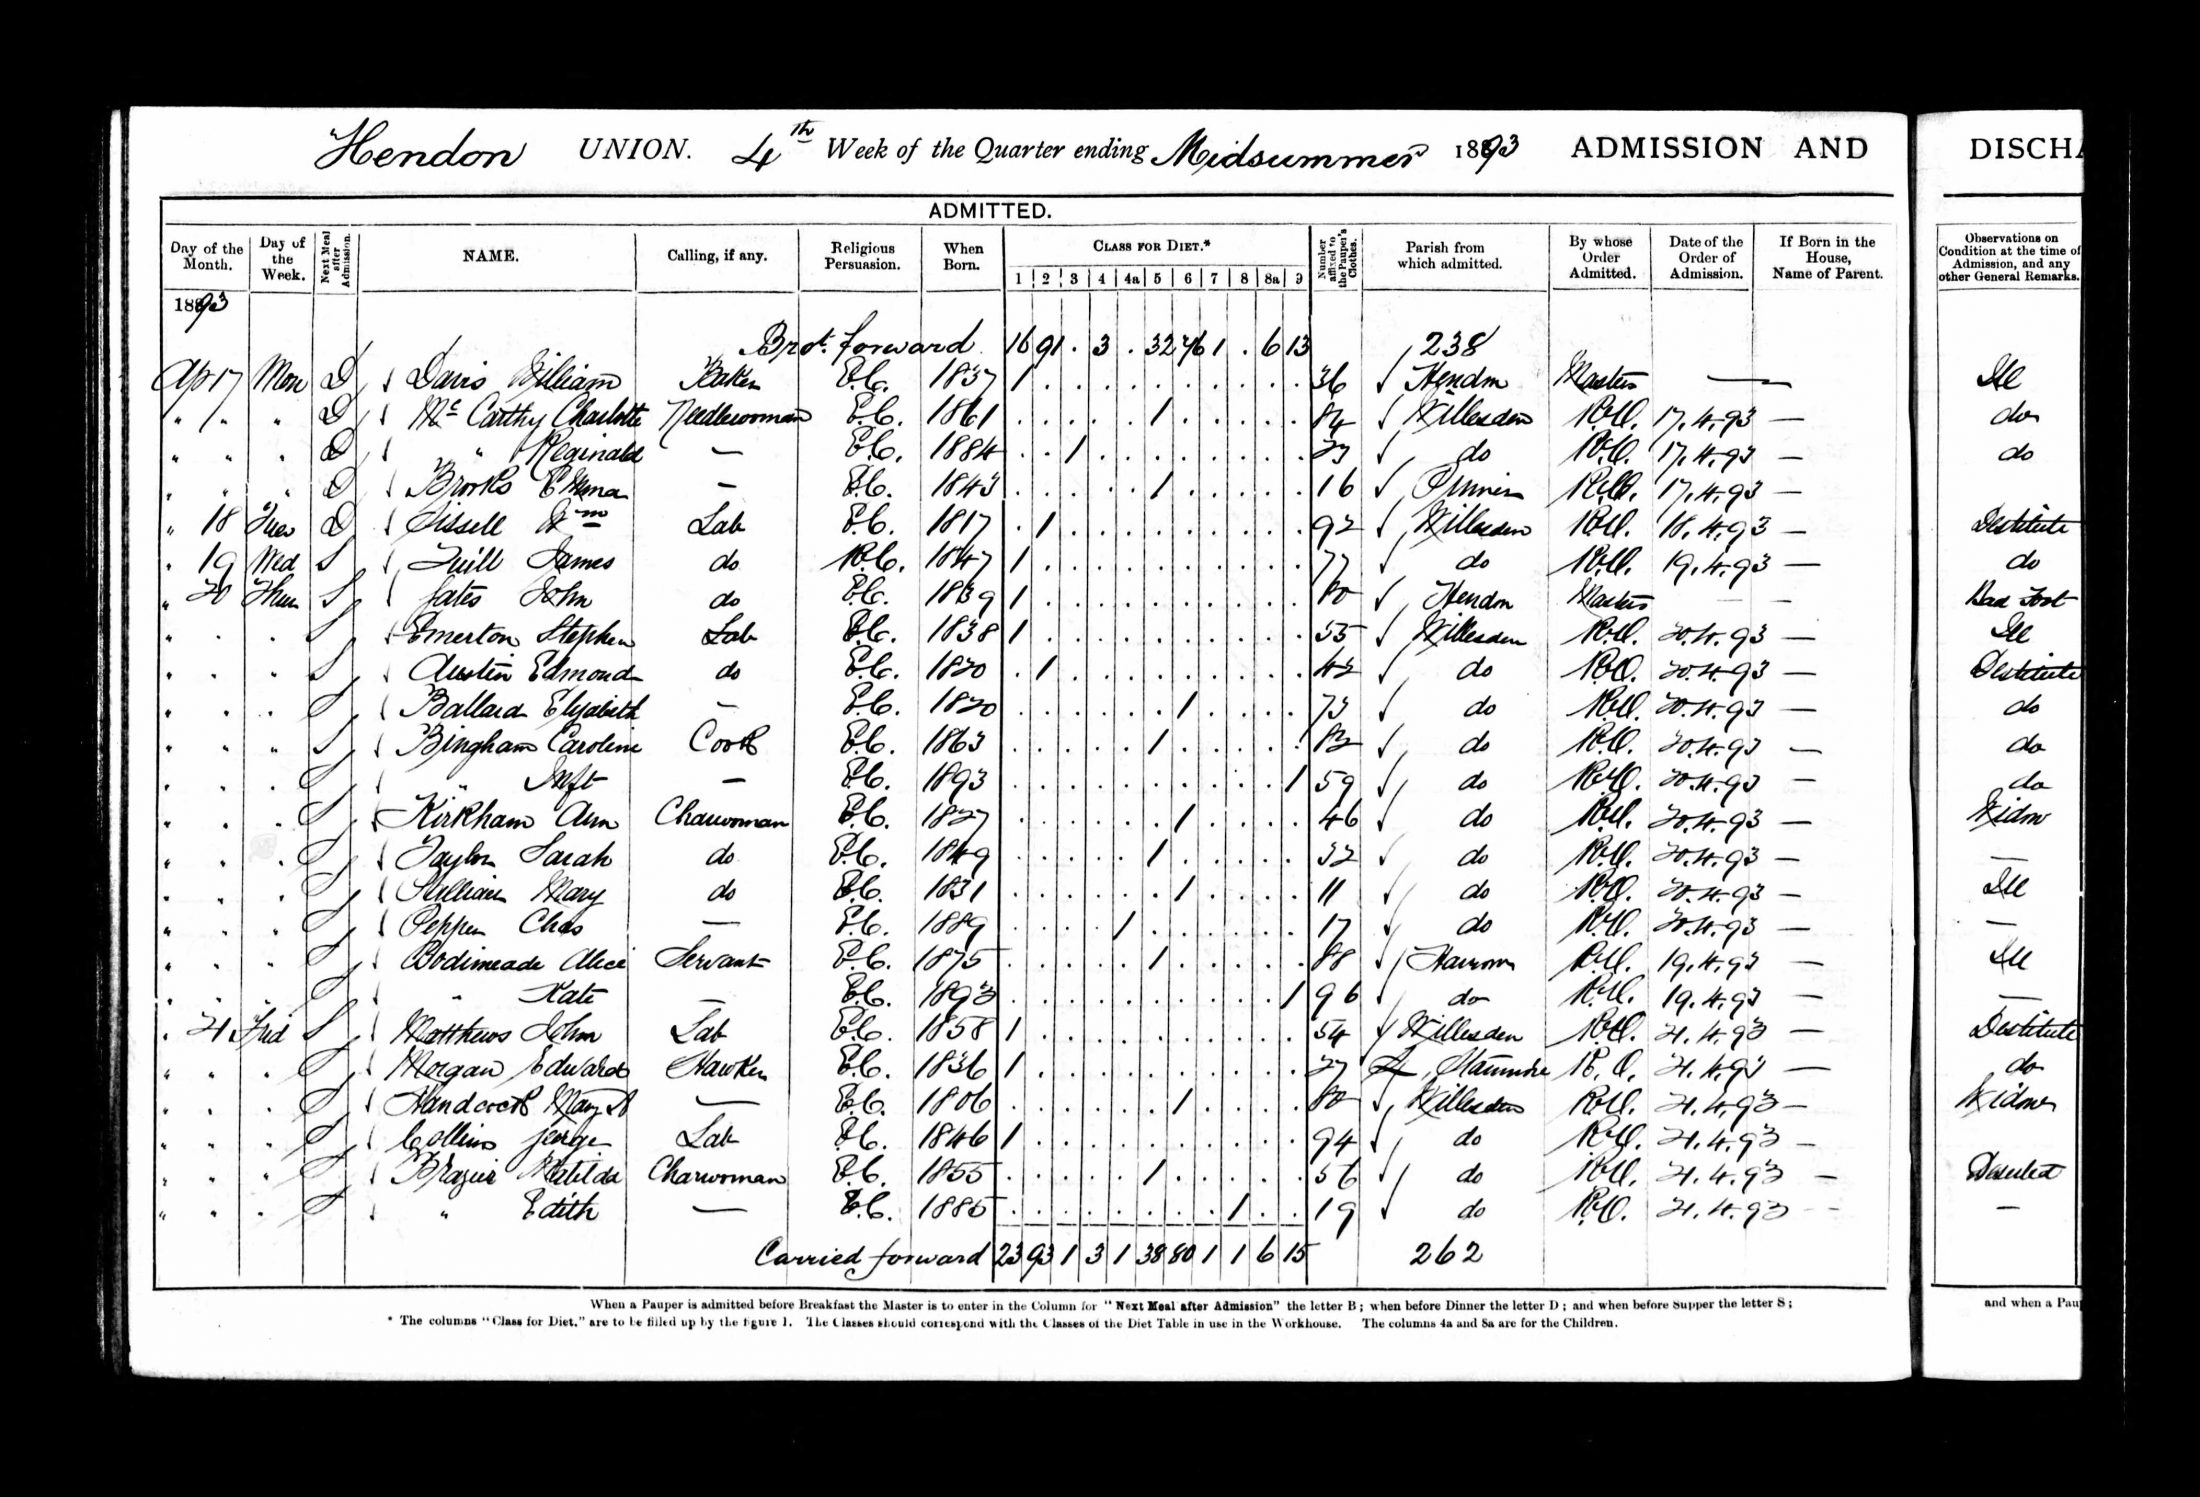 Hendon UNION. 4th Week of the Quarter ending Midsummer 1893 ADMISSION AND DISCHA
ADMITTED.
Day of the Month. Day of the Week. Next Meal after Admission. NAME. Calling, if any. Religious Persuasion. When Born. CLASS FOR DIET.* Number affixed to the Pauper's Clothes. Parish from which admitted. By whose Order Admitted. Date of the Order of Admission. If Born in the House, Name of Parent. Observations on Condition at the time of Admission, and any other General Remarks.
1 2 3 4 4a 5 6 7 8 8a 9
1893
Brot. forward 16 91 . 3 . 32 76 1 . 6 13 238
Ap 17 Mon D Davis William Baker E.C. 1837 1 36 Hendon Masters — Ill
" " " D Mc Carthy Charlotte Needlewoman E.C. 1861 1 84 Willesden R.O. 17.4.93 — do
" " " D " Reginald — E.C. 1884 1 23 do R.O. 17.4.93 — do
" " " D Brooks Emma — E.C. 1843 1 16 Pinner R.O. 17.4.93 —
" 18 Tues D Sissell Wm Lab E.C. 1817 1 92 Willesden R.O. 18.4.93 — Destitute
" 19 Wed S Quill James do R.C. 1847 1 77 do R.O. 19.4.93 — do
" 20 Thur S John do E.C. 1839 1 Hendon Masters — — Bad Foot
" " " S Emerton Stephen Lab E.C. 1838 1 55 Willesden R.O. 20.4.93 — Ill
" " " S Austin Edmond do E.C. 1820 1 42 do R.O. 20.4.93 — Destitute
" " " S Ballard Elizabeth — E.C. 1820 1 73 do R.O. 20.4.93 — do
" " " S Bingham Caroline Cook E.C. 1863 1 82 do R.O. 20.4.93 — do
" " " S " Inft — E.C. 1893 1 59 do R.O. 20.4.93 — do
" " " S Kirkham Ann Charwoman E.C. 1827 1 46 do R.O. 20.4.93 — Widow
" " " S Taylor Sarah do E.C. 1849 1 52 do R.O. 20.4.93 — —
" " " S Mary do E.C. 1831 1 11 do R.O. 20.4.93 — Ill
" " " S Pepper Chas — E.C. 1889 1 17 do R.O. 20.4.93 — —
" " " S Bodimeade Alice Servant E.C. 1875 1 88 Harrow R.O. 19.4.93 — Ill
" " " S " Kate — E.C. 1893 1 96 do R.O. 19.4.93 — —
" 21 Frid S Matthews John Lab E.C. 1858 1 54 Willesden R.O. 21.4.93 — Destitute
" " " S Morgan Edward Hawker E.C. 1836 1 27 Stanmore R.O. 21.4.93 — do
" " " S Handcock Mary A — E.C. 1806 1 Willesden R.O. 21.4.93 — Widow
" " " S Collins George Lab E.C. 1846 1 94 do R.O. 21.4.93 —
" " " S Brazier Matilda Charwoman E.C. 1855 1 56 do R.O. 21.4.93 — Deserted
" " " S " Edith — E.C. 1885 1 19 do R.O. 21.4.93 — —
Carried forward 23 93 1 3 1 38 80 1 1 6 15 262
When a Pauper is admitted before Breakfast the Master is to enter in the Column for "Next Meal after Admission" the letter B; when before Dinner the letter D; and when before Supper the letter S; and when a Pau
* The columns "Class for Diet," are to be filled up by the figure 1. The Classes should correspond with the Classes of the Diet Table in use in the Workhouse. The columns 4a and 8a are for the Children.